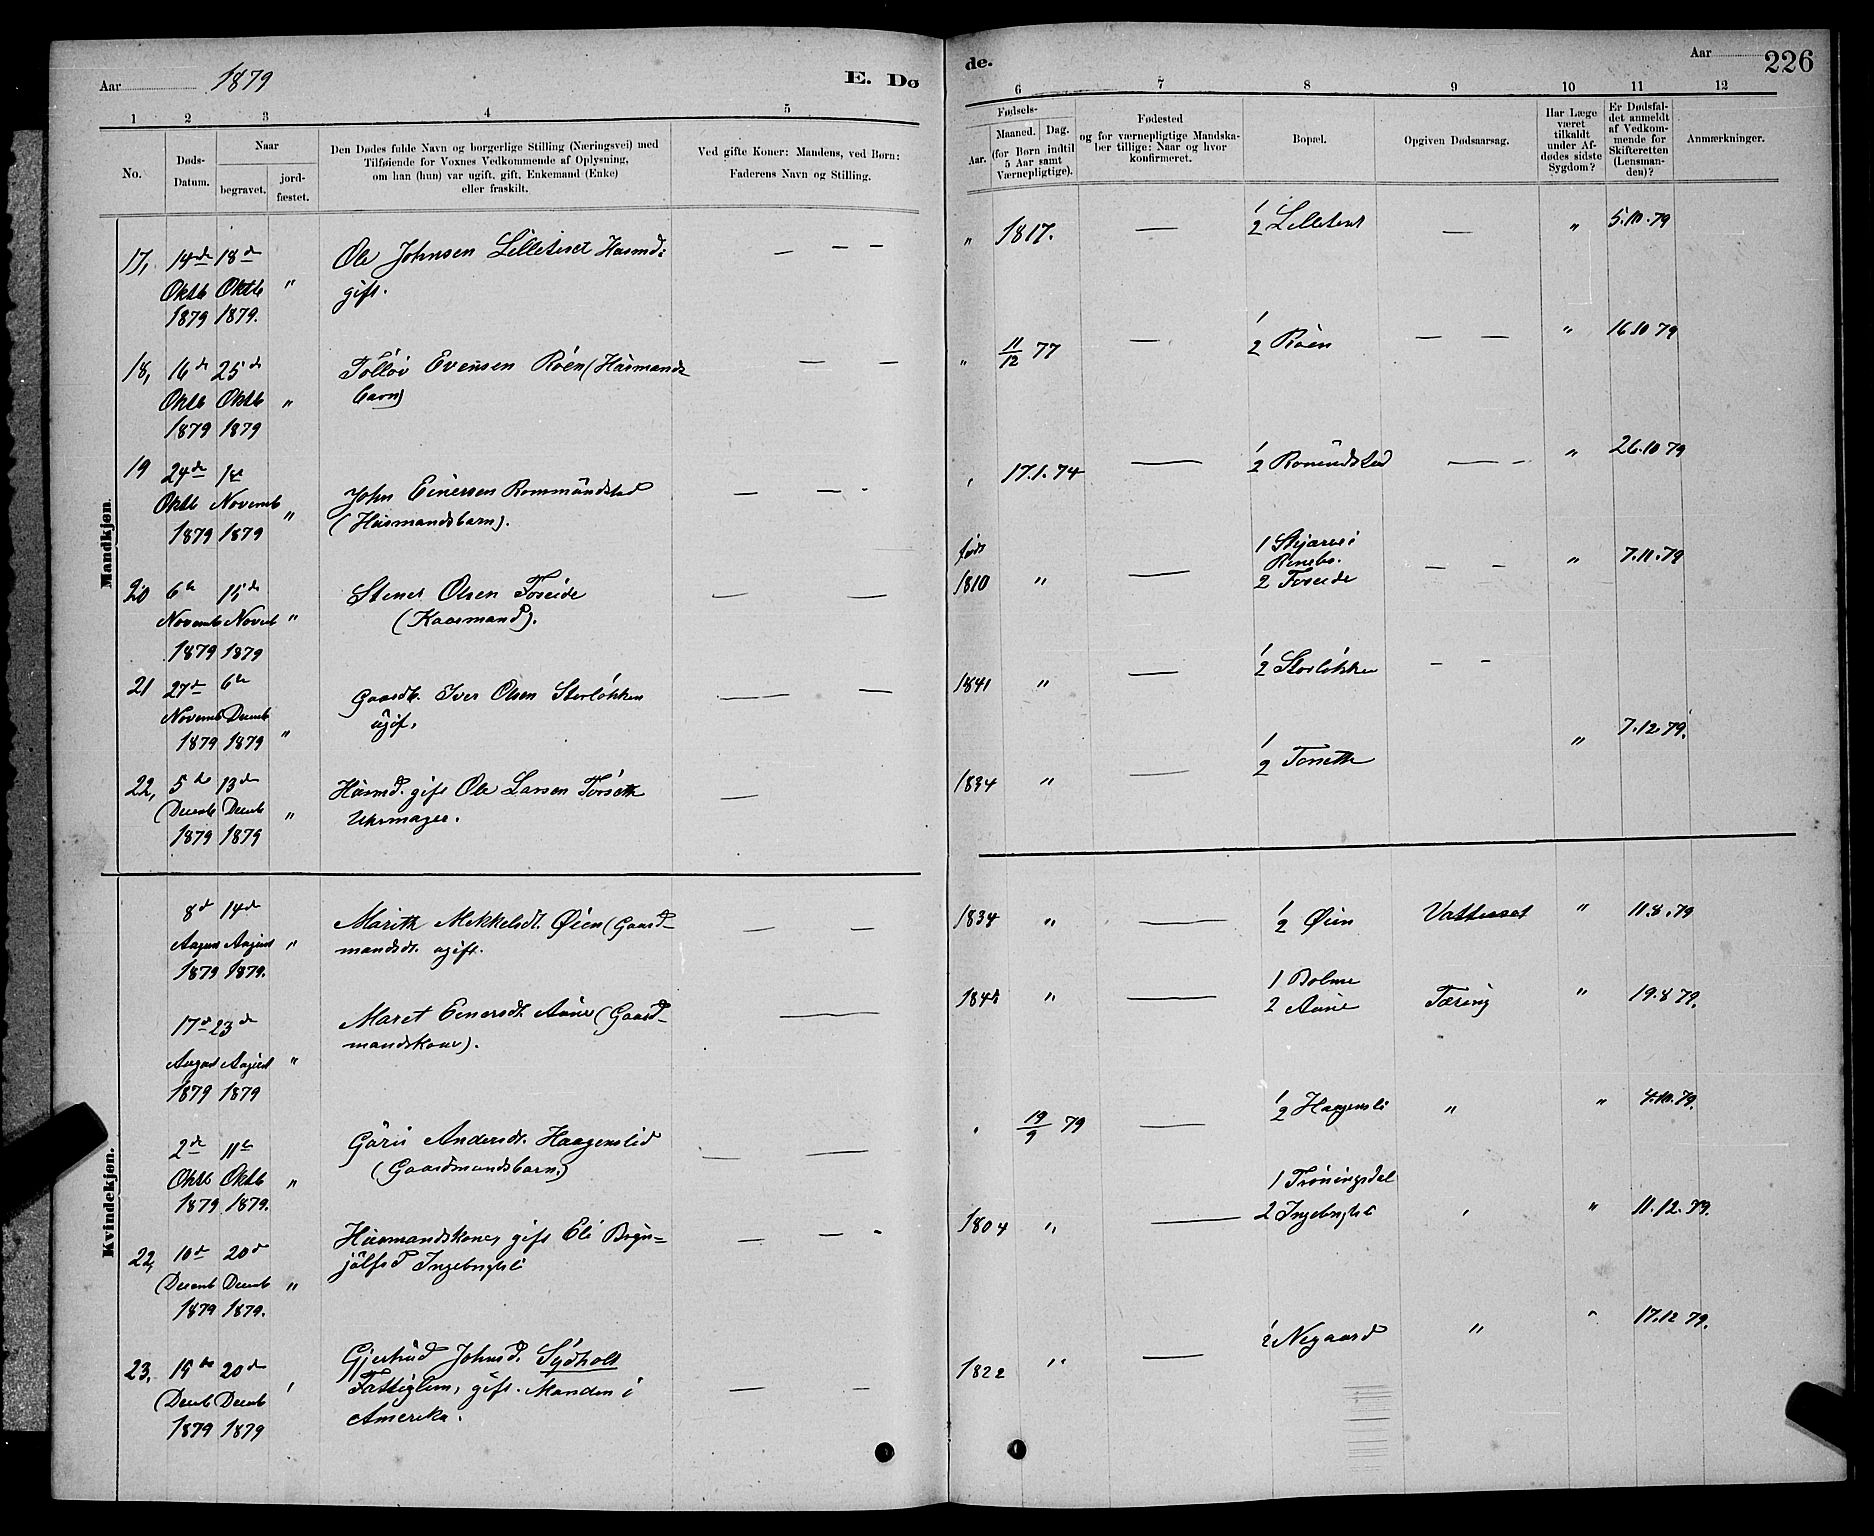 Aar 1879
E. Dø
de.
Aar 226
1 2 3 4 5 6 7 8 9 10 11 12
No.
Døds-
Datum.
Naar
begravet.
jord-
fæstet.
Den Dødes fulde Navn og borgerlige Stilling (Næringsvei) med
Tilføiende for Voxnes Vedkommende af Oplysning,
om han (hun) var ugift, gift, Enkemand (Enke)
eller fraskilt.
Ved gifte Koner: Mandens, ved Børn:
Faderens Navn og Stilling.
Fødsels-
Aar.
Maaned. Dag.
(for Børn indtil
5 Aar samt
Værnepligtige).
Fødested
og for værnepligtige Mandska-
ber tillige: Naar og hvor
konfirmeret.
Bopæl.
Opgiven Dødsaarsag.
Har Læge
været
tilkaldt
under Af-
dødes sidste
Sygdom?
Er Dødsfal-
det anmeldt
af Vedkom-
mende for
Skifteretten
(Lensman-
den)?
Anmærkninger.
Mandkjøn.
17, 14de 18de Ole Johnsen Lilletiset Husmd: — — — " 1817. — 1/2 Lilletiset — " 5.10.79
Oktb Oktb " gift.
1879 1879.
18, 16de 25de Tollöv Evensen Röen (Husmands — — " 11/12 77 — 1/2 Röen — — " 16 10 79
Oktb Oktb " barn)
1879 1879
19 24de 1ste John Einersen Rommündstad — — - 17.1.74 — 1/2 Romundstad — " 26.10 79
Oktb Novemb " (Husmandsbarn).
1879 1879
20 6te 15de Stener Olsen Foseide — — født 1810 " — 1 Skjærvei Renebo. 2 Foseide — — " 7.11.79
Novemb Novb " (Kaarmand).
1879 1879
21 27de 6te Gaardb. Iver Olsen Storløkken — — 1841 " — 1/2 Storløkken — —
Novemb Decmb " ugift.
1879 1879
22, 5te 13de Husmd. gift Ole Larsen Torseth — 1834 " — 1/2 Torseth " 7.12.79.
Decmb Decmb " Uhrmager.
1879 1879
Kvindekjøn.
8de 14de Marith Mekkelsdt. Øien (Gaard- — — 1834 " — 1/2 Øien Vattersot " 11.8.79
August August " mandsdt. ugift.
1879 1879.
17de 23de Maret Einersdt. Aune (Gaard- — " — 1 Bolme 2 Aune Tæring " 19.8 79.
August August " mandskone).
1879 1879
2de 11te Göri Andersdt. Haagenslid — — 19/9 79 — 1/2 Haagensli " " 4.10.79.
Oktb Oktb " (Gaardmandsbarn.)
1879 1879.
22, 10de 20de Husmandskone, gift Eli Bryn- — — 1804 " — 1 Trøningsdal 2 Ingebrigtsli " 11.12.79.
Decmb Decmb " jolfsd Ingebrigtsli
1879 1879.
23, 15de 20de Gjertrud Johnsd. Sydholt — — 1822 " — 1/2 Negaard " " 17.12 79.
Decmb Decmb Fattiglem, gift. Manden i
1879 1879 Amerika.